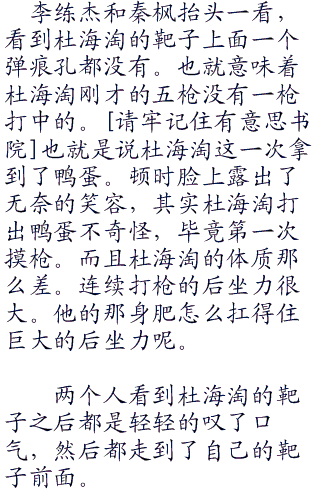 李练杰和秦枫抬头一看，
看到杜海淘的靶子上面一个
弹痕孔都没有。也就意味着
杜海淘刚才的五枪没有一枪
打中的。[请牢记住有意思书
院]也就是说杜海淘这一次拿
到了鸭蛋。顿时脸上露出了
无奈的笑容，其实杜海淘打
出鸭蛋不奇怪，毕竟第一次
摸枪。而且杜海淘的体质那
么差。连续打枪的后坐力很
大。他的那身肥怎么扛得住
巨大的后坐力呢。
两个人看到杜海淘的靶
子之后都是轻轻的叹了口
气，然后都走到了自己的靶
子前面。